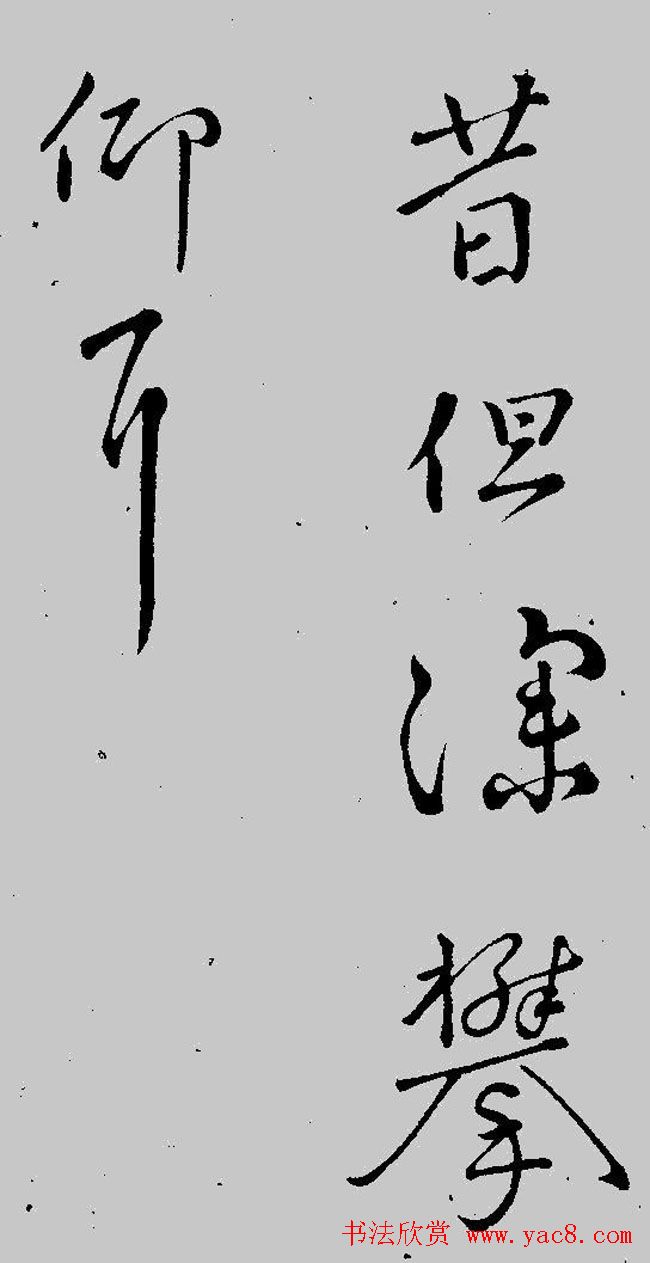 昔但深攀
仰耳
书法欣赏 www.yac8.com